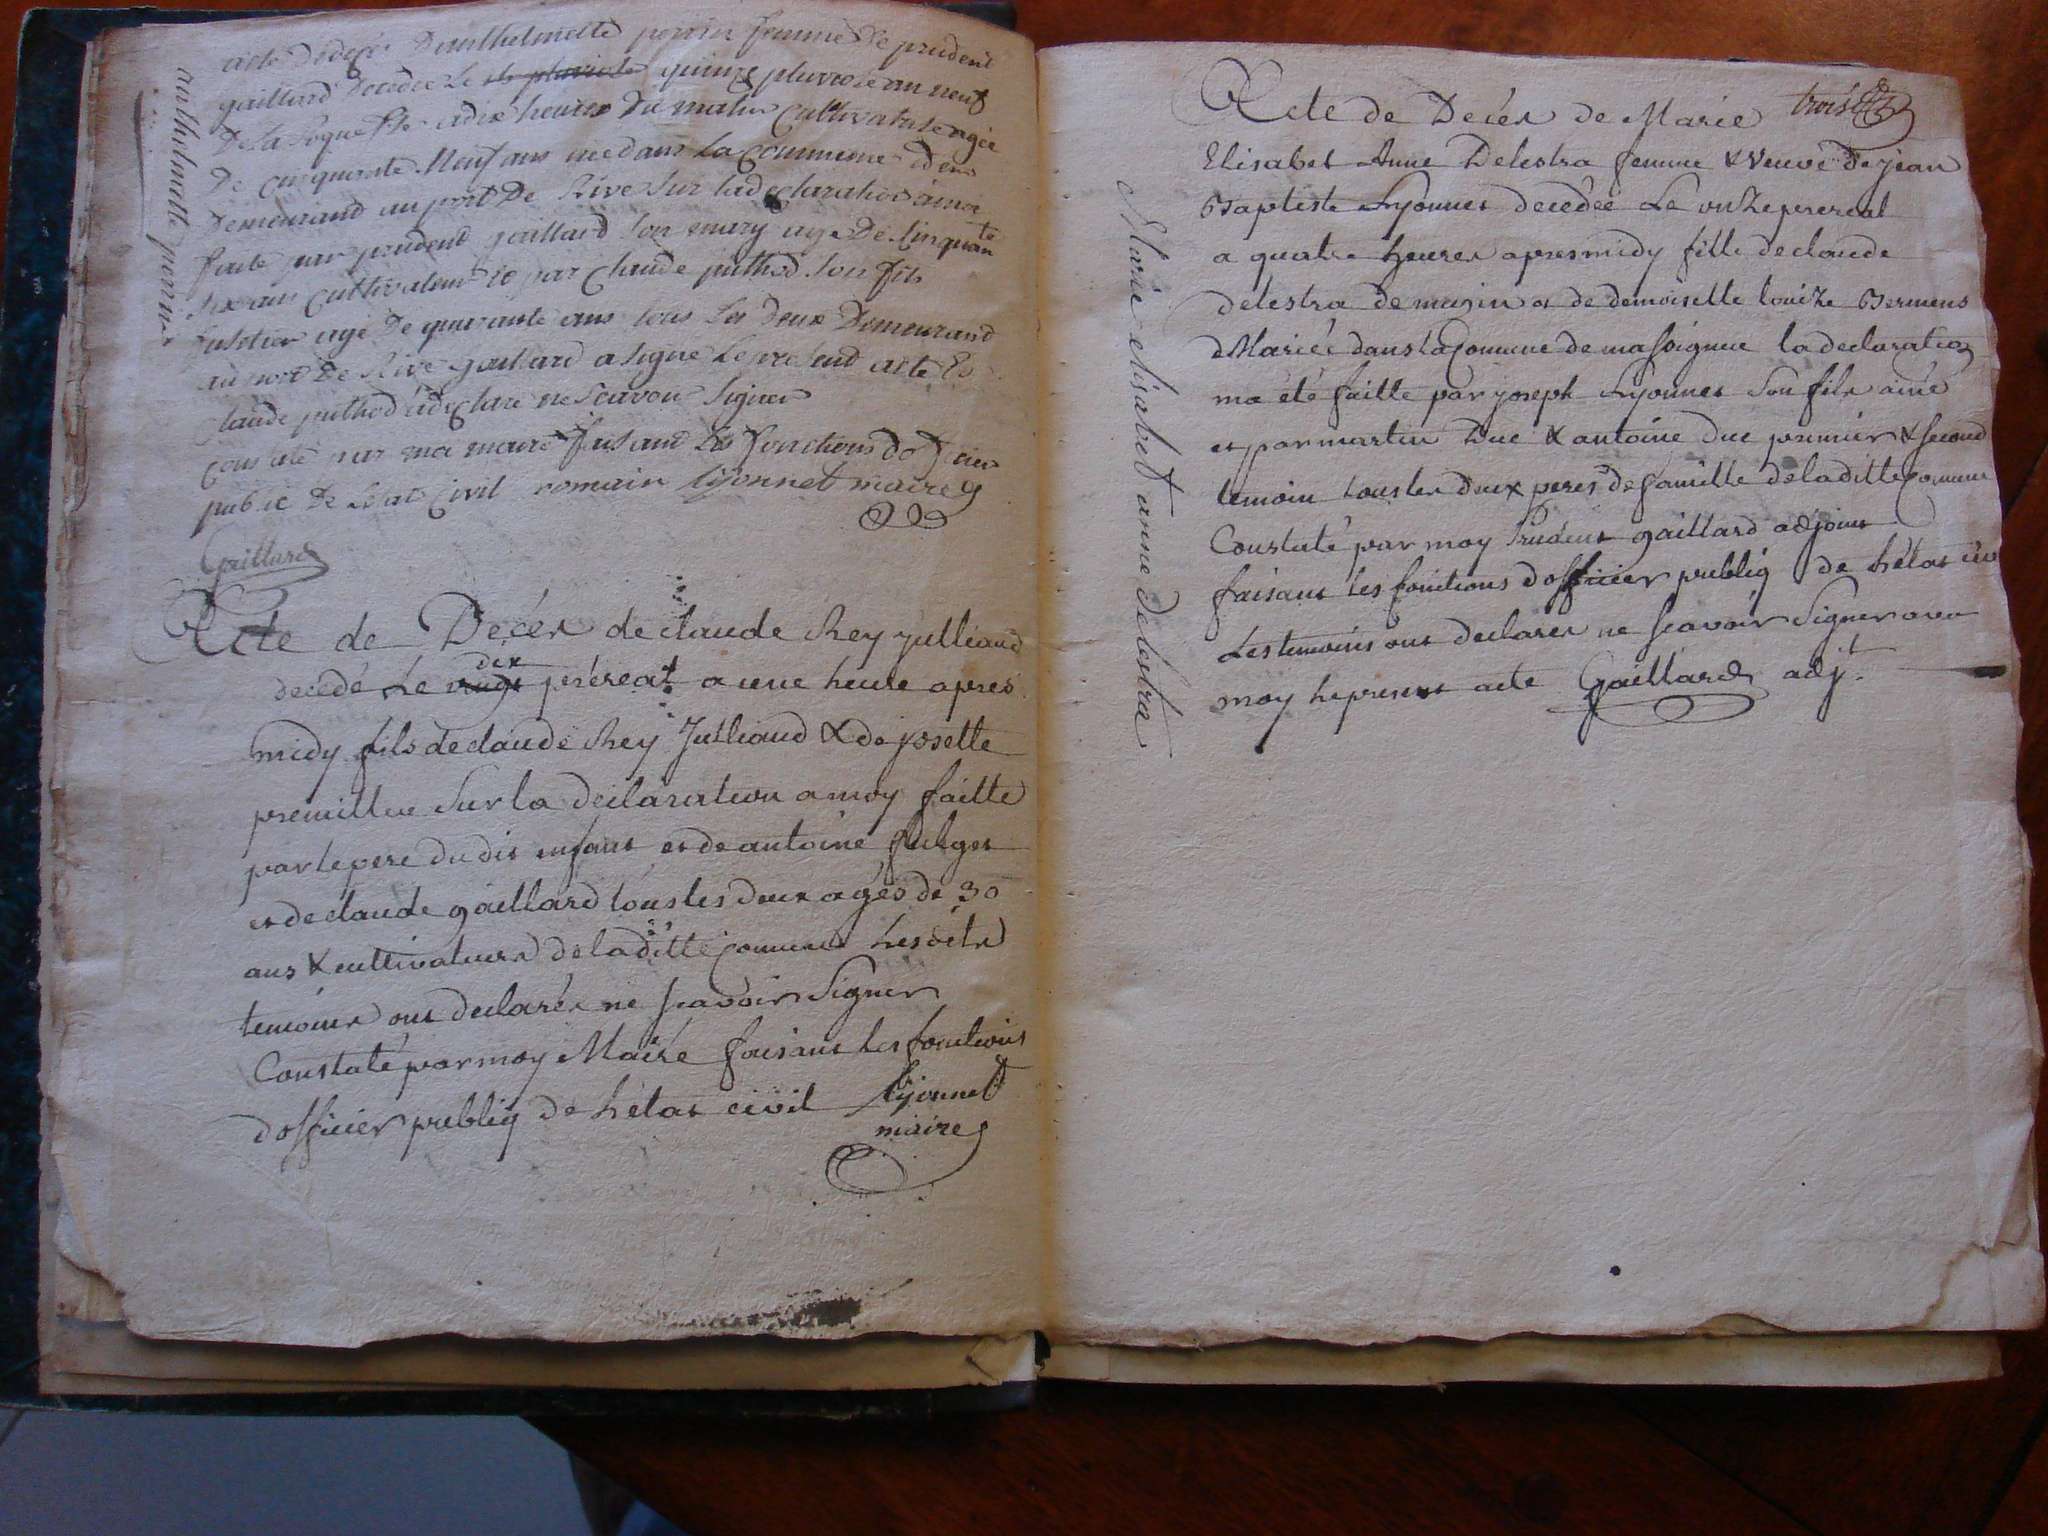 acte de decès danthelmette perrin femme de prudent
gaillard décédée le quinze pluviose an neuf
de la republique a dix heures du matin cultivatrice agée
de cinquante neuf ans née dans la commune
demeurand au port De Rive sur la declaration a moi
faite par prudent gaillard son mary age De cinquante
six ans cultivateur et par Claude puthod son fils
age De quarante ans tous les deux Demeurand
au port De Rive gaillard a signé le presend acte Et
Claude puthod a declaré ne scavoir signer
Constaté par moi maire faisand les fonctions doficier
public De letat Civil romain lyonnet maire
Gaillard
anthelmette perrin
Acte de Décès de claude Rey Julliand
decédé Le dix préréal a une heure apres
midy fils de claude Rey Julliand & de josette
premillieu Sur la déclaration a moy faitte
par le pere du dit enfant et de antoine
et de claude gaillard tous les deux agés de 30
ans & cultivateurs de la ditte Commune Lesdits
temoins ont declarés ne scavoir Signer
Constaté par moy Maire faisant les fonctions
dofficier publiq de l'état civil lyonnet
maire
troise
Acte de Decés de Marie
Elisabet Anne Delestra femme & Veuve de jean
Baptiste Lyonnet décédée Le onze prereal
a quatre heures apres midy fille de claude
delestra de magin et de demoiselle louize Bermens
Mariée dans la Comune de massignieu la declaration
ma été faitte par joseph Lyonnet Son fils ainé
et par martin Duc & antoine duc premier & second
temoin tous les deux peres de famille de la ditte Commune
Constaté par moy Prudent gaillard adjoint
faisant les fonctions dofficier publiq de l'état civ
Les temoins ont declarés ne scavoir Signer avec
moy le present acte Gaillard adjt.
Marie elisabet anne delestra